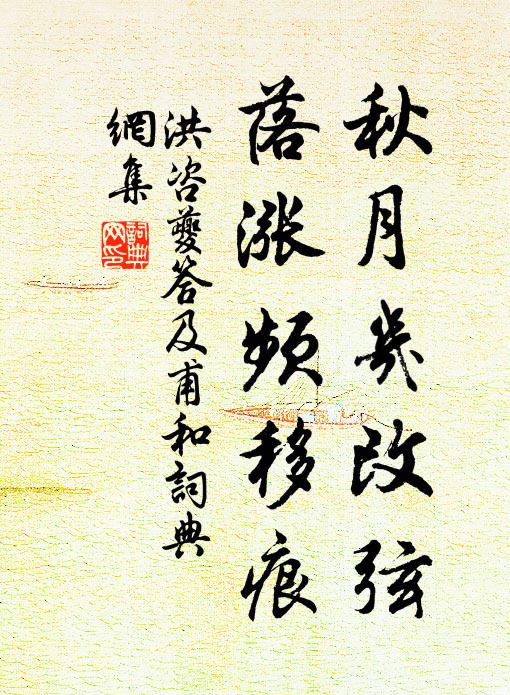 秋月幾改弦
落漲頻移痕
洪咨夔答及甫和詞典
網集
詞典
网印